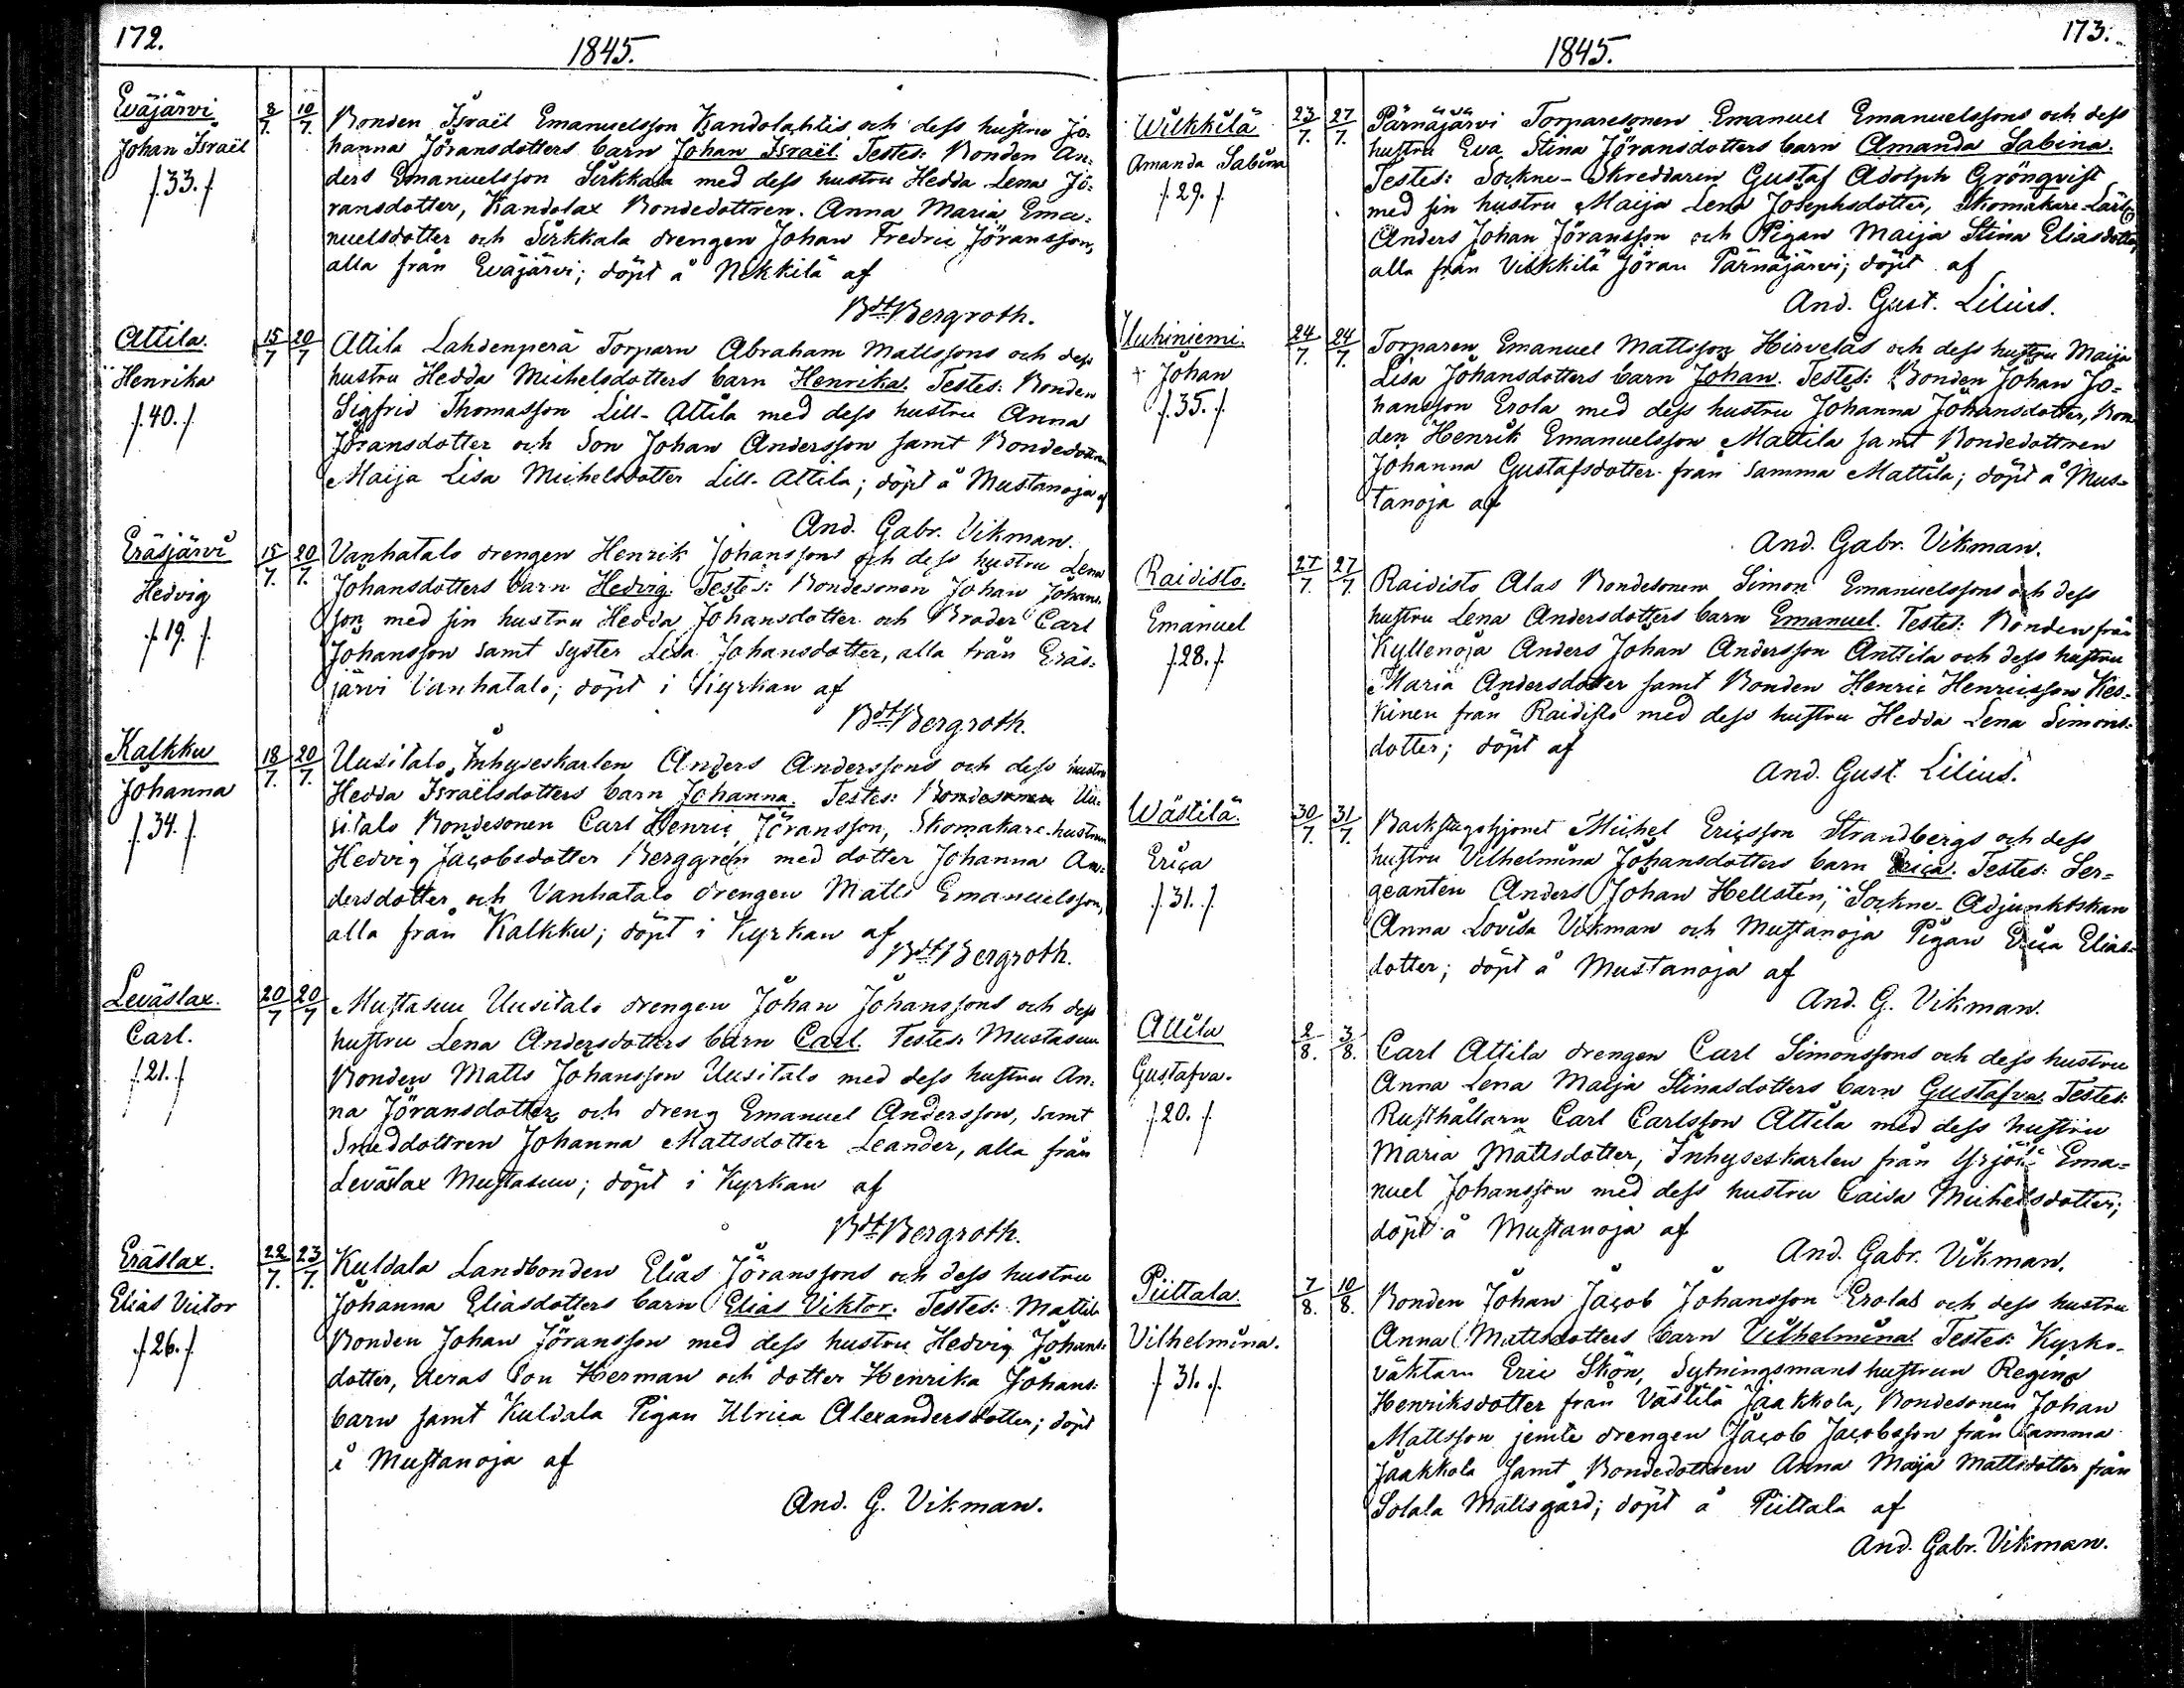 172.
1845.
Eväjärvi
Johan Israël
/.33./
8/7. 10/7.
Bonden Israël Emanuelsson Kandolahtis och dess hustru Jo-
hanna Jöransdotters barn Johan Israël. Testes: Bonden An-
ders Emanuelsson Sirkkala med dess hustru Hedda Lena Jö-
ransdotter, Kandolax Bondedottren Anna Maria Ema-
nuelsdotter och Sirkkala drengen Johan Fredric Jöransson,
alla från Eväjärvi; döpt å Nikkilä af
Bdt Bergroth.
Attila.
Henrika
/.40./
15/7 20/7
Attila Lahdenperä Torparn Abraham Mattssons och dess
hustru Hedda Michelsdotters barn Henrika. Testes: Bonden
Sigfrid Thomasson Lill-Attila med dess hustru Anna
Jöransdotter och Son Johan Andersson samt Bondedottren
Maija Lisa Michelsdotter Lill-Attila; döpt å Mustanoja af
And. Gabr. Vikman.
Eräsjärvi
Hedvig
/.19./
15/7. 20/7.
Vanhatalo drengen Henrik Johanssons och dess hustru Lena
Johansdotters barn Hedvig. Testes: Bondesonen Johan Johans-
son med sin hustru Hedda Johansdotter och Broder Carl
Johansson samt Syster Lisa Johansdotter, alla från Eräs-
järvi Vanhatalo; döpt i Kyrkan af
Bdt Bergroth.
Kalkku
Johanna
/.34./
18/7. 20/7.
Uusitalo Inhyseskarlen Anders Anderssons och dess hustru
Hedda Israëlsdotters barn Johanna. Testes: Bondesonen Uu-
sitalo Bondesonen Carl Henric Jöransson, Skomakare-hustrun
Hedvig Jacobsdotter Berggrén med dotter Johanna An-
dersdotter och Vanhatalo drengen Matts Emanuelsson,
alla från Kalkku; döpt i Kyrkan af
Bdt Bergroth.
Leväslax.
Carl.
/.21./
20/7 20/7
Mustasuu Uusitalo drengen Johan Johanssons och dess
hustru Lena Andersdotters barn Carl. Testes: Mustasuu
Bonden Matts Johansson Uusitalo med dess hustru An-
na Jöransdotter och dreng Emanuel Andersson, samt
Smeddottren Johanna Mattsdotter Leander, alla från
Leväslax Mustasuu; döpt i Kyrkan af
Bdt Bergroth.
Eräslax.
Elias Victor
/.26./
22/7. 23/7.
Kuldala Landbonden Elias Jöranssons och dess hustru
Johanna Eliasdotters barn Elias Viktor. Testes: Mattila
Bonden Johan Jöransson med dess hustru Hedvig Johans-
dotter, deras Son Herman och dotter Henrika Johans-
barn samt Kuldala Pigan Ulrica Alexandersdotter; döpt
å Mustanoja af
And. G. Vikman.
173.
1845.
Wilkkilä
Amanda Sabina
/.29./
23/7. 27/7.
Pärnäjärvi Torparesonen Emanuel Emanuelssons och dess
hustru Eva Stina Jöransdotters barn Amanda Sabina.
Testes: Sockne-Skreddaren Gustaf Adolph Grönqvist
med sin hustru Maija Lena Josephsdotter, Skomakare-Lärl.
Anders Johan Jöransson och Pigan Maija Stina Eliasdotter
alla från Vilkkilä Jöran Pärnäjärvi; döpt af
And. Gust. Lilius.
Uuhiniemi.
+ Johan
/.35./
24/7. 24/7.
Torparen Emanuel Mattsson Hirvelas och dess hustru Maija
Lisa Johansdotters barn Johan. Testes: Bonden Johan Jo-
hansson Erola med dess hustru Johanna Johansdotter, Bon-
den Henrik Emanuelsson Mattila samt Bondedottren
Johanna Gustafsdotter från samma Mattila; döpt å Mus-
tanoja af
And. Gabr. Vikman.
Raidisto.
Emanuel
/.28./
27/7. 27/7.
Raidisto Alas Bondesonen Simon Emanuelssons och dess
hustru Lena Andersdotters barn Emanuel. Testes: Bonden från
Kyllenoja Anders Johan Andersson Anttila och dess hustru
Maria Andersdotter samt Bonden Henric Henricsson Kes-
kinen från Raidisto med dess hustru Hedda Lena Simons-
dotter; döpt af
And. Gust. Lilius.
Wästilä.
Erica
/.31./
30/7. 31/7.
Backstugohjonet Michel Ericsson Strandbergs och dess
hustru Vilhelmina Johansdotters barn Erica. Testes: Ser-
geanten Anders Johan Hellsten, Sockne-Adjunktskan
Anna Lovisa Vikman och Mustanoja Pigan Erica Elias-
dotter; döpt å Mustanoja af
And. G. Vikman.
Attila
Gustafva.
/.20./
2/8. 3/8.
Carl Attila drengen Carl Simonssons och dess hustru
Anna Lena Maija Stinasdotters barn Gustafva. Testes:
Rusthållarn Carl Carlsson Attila med dess hustru
Maria Mattsdotter, Inhyseskarlen från Yrjölä Ema-
nuel Johansson med dess hustru Caisa Michelsdotter;
döpt å Mustanoja af
And. Gabr. Vikman.
Piittala.
Vilhelmina.
/.31./
7/8. 10/8.
Bonden Johan Jacob Johansson Erolas och dess hustru
Anna Mattsdotters barn Vilhelmina. Testes: Kyrko-
väktarn Eric Skön, Sytningsmans hustrun Regina
Henriksdotter från Västilä Jaakkola, Bondesonen Johan
Mattsson jemte drengen Jacob Jacobsson från samma
Jaakkola samt Bondedottren Anna Maija Mattsdotter från
Solala Mattsgård; döpt å Piittala af
And. Gabr. Vikman.